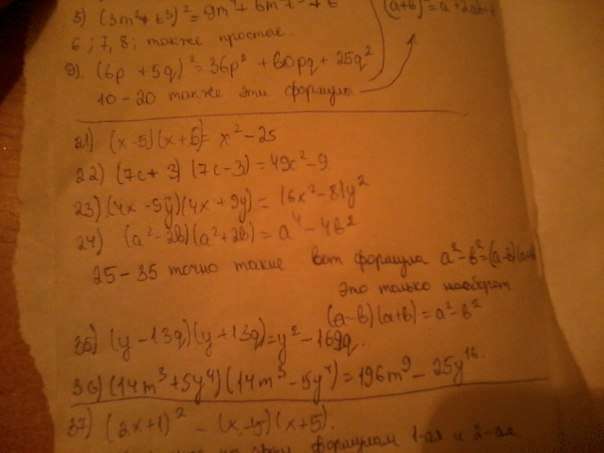 5) (3m²+ t³)² = 9m⁴ + 6m²t³ + t⁶
(a+b)² = a²+2ab+
6; 7, 8; также простые.
9) (6p + 5q)² = 36p² + 60pq + 25q²
10 – 20 также эти формулы
21) (x-5)(x+5) = x² - 25
22) (7c + 3)(7c - 3) = 49c² - 9
23) (4x - 9y)(4x + 9y) = 16x² - 81y²
24) (a² - 2b)(a² + 2b) = a⁴ - 4b²
25 – 35 точно такие вот формула a² - b² = (a-b)(a+b
Это только наоборот
(a-b)(a+b) = a² - b²
35) (y - 13q)(y + 13q) = y² - 169q.
36) (14m³ + 5y⁴)(14m³ - 5y⁴) = 196m⁹ - 25y¹⁶.
37) (3x+1)² - (x-5)(x+5).
формулам 1-ая и 2-ая